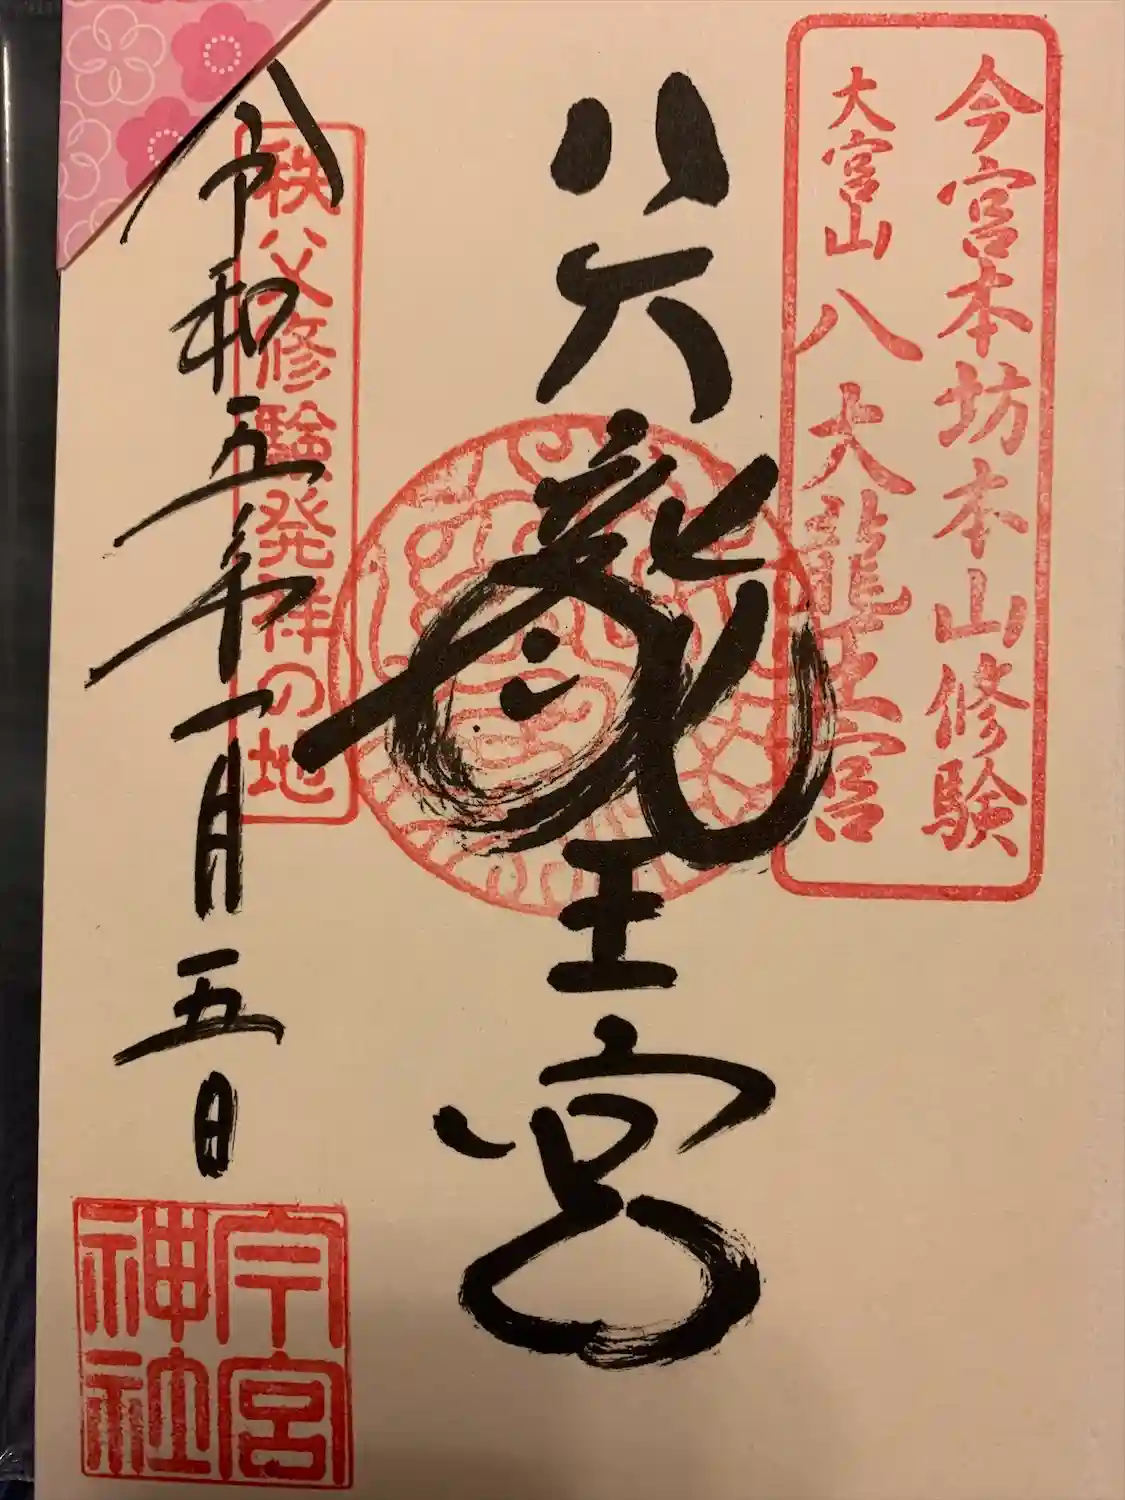 今宮本坊本山修験
大宮山 八大龍王宮
八大龍王宮
秩父修験発祥の地
令和五年一月五日
今宮神社